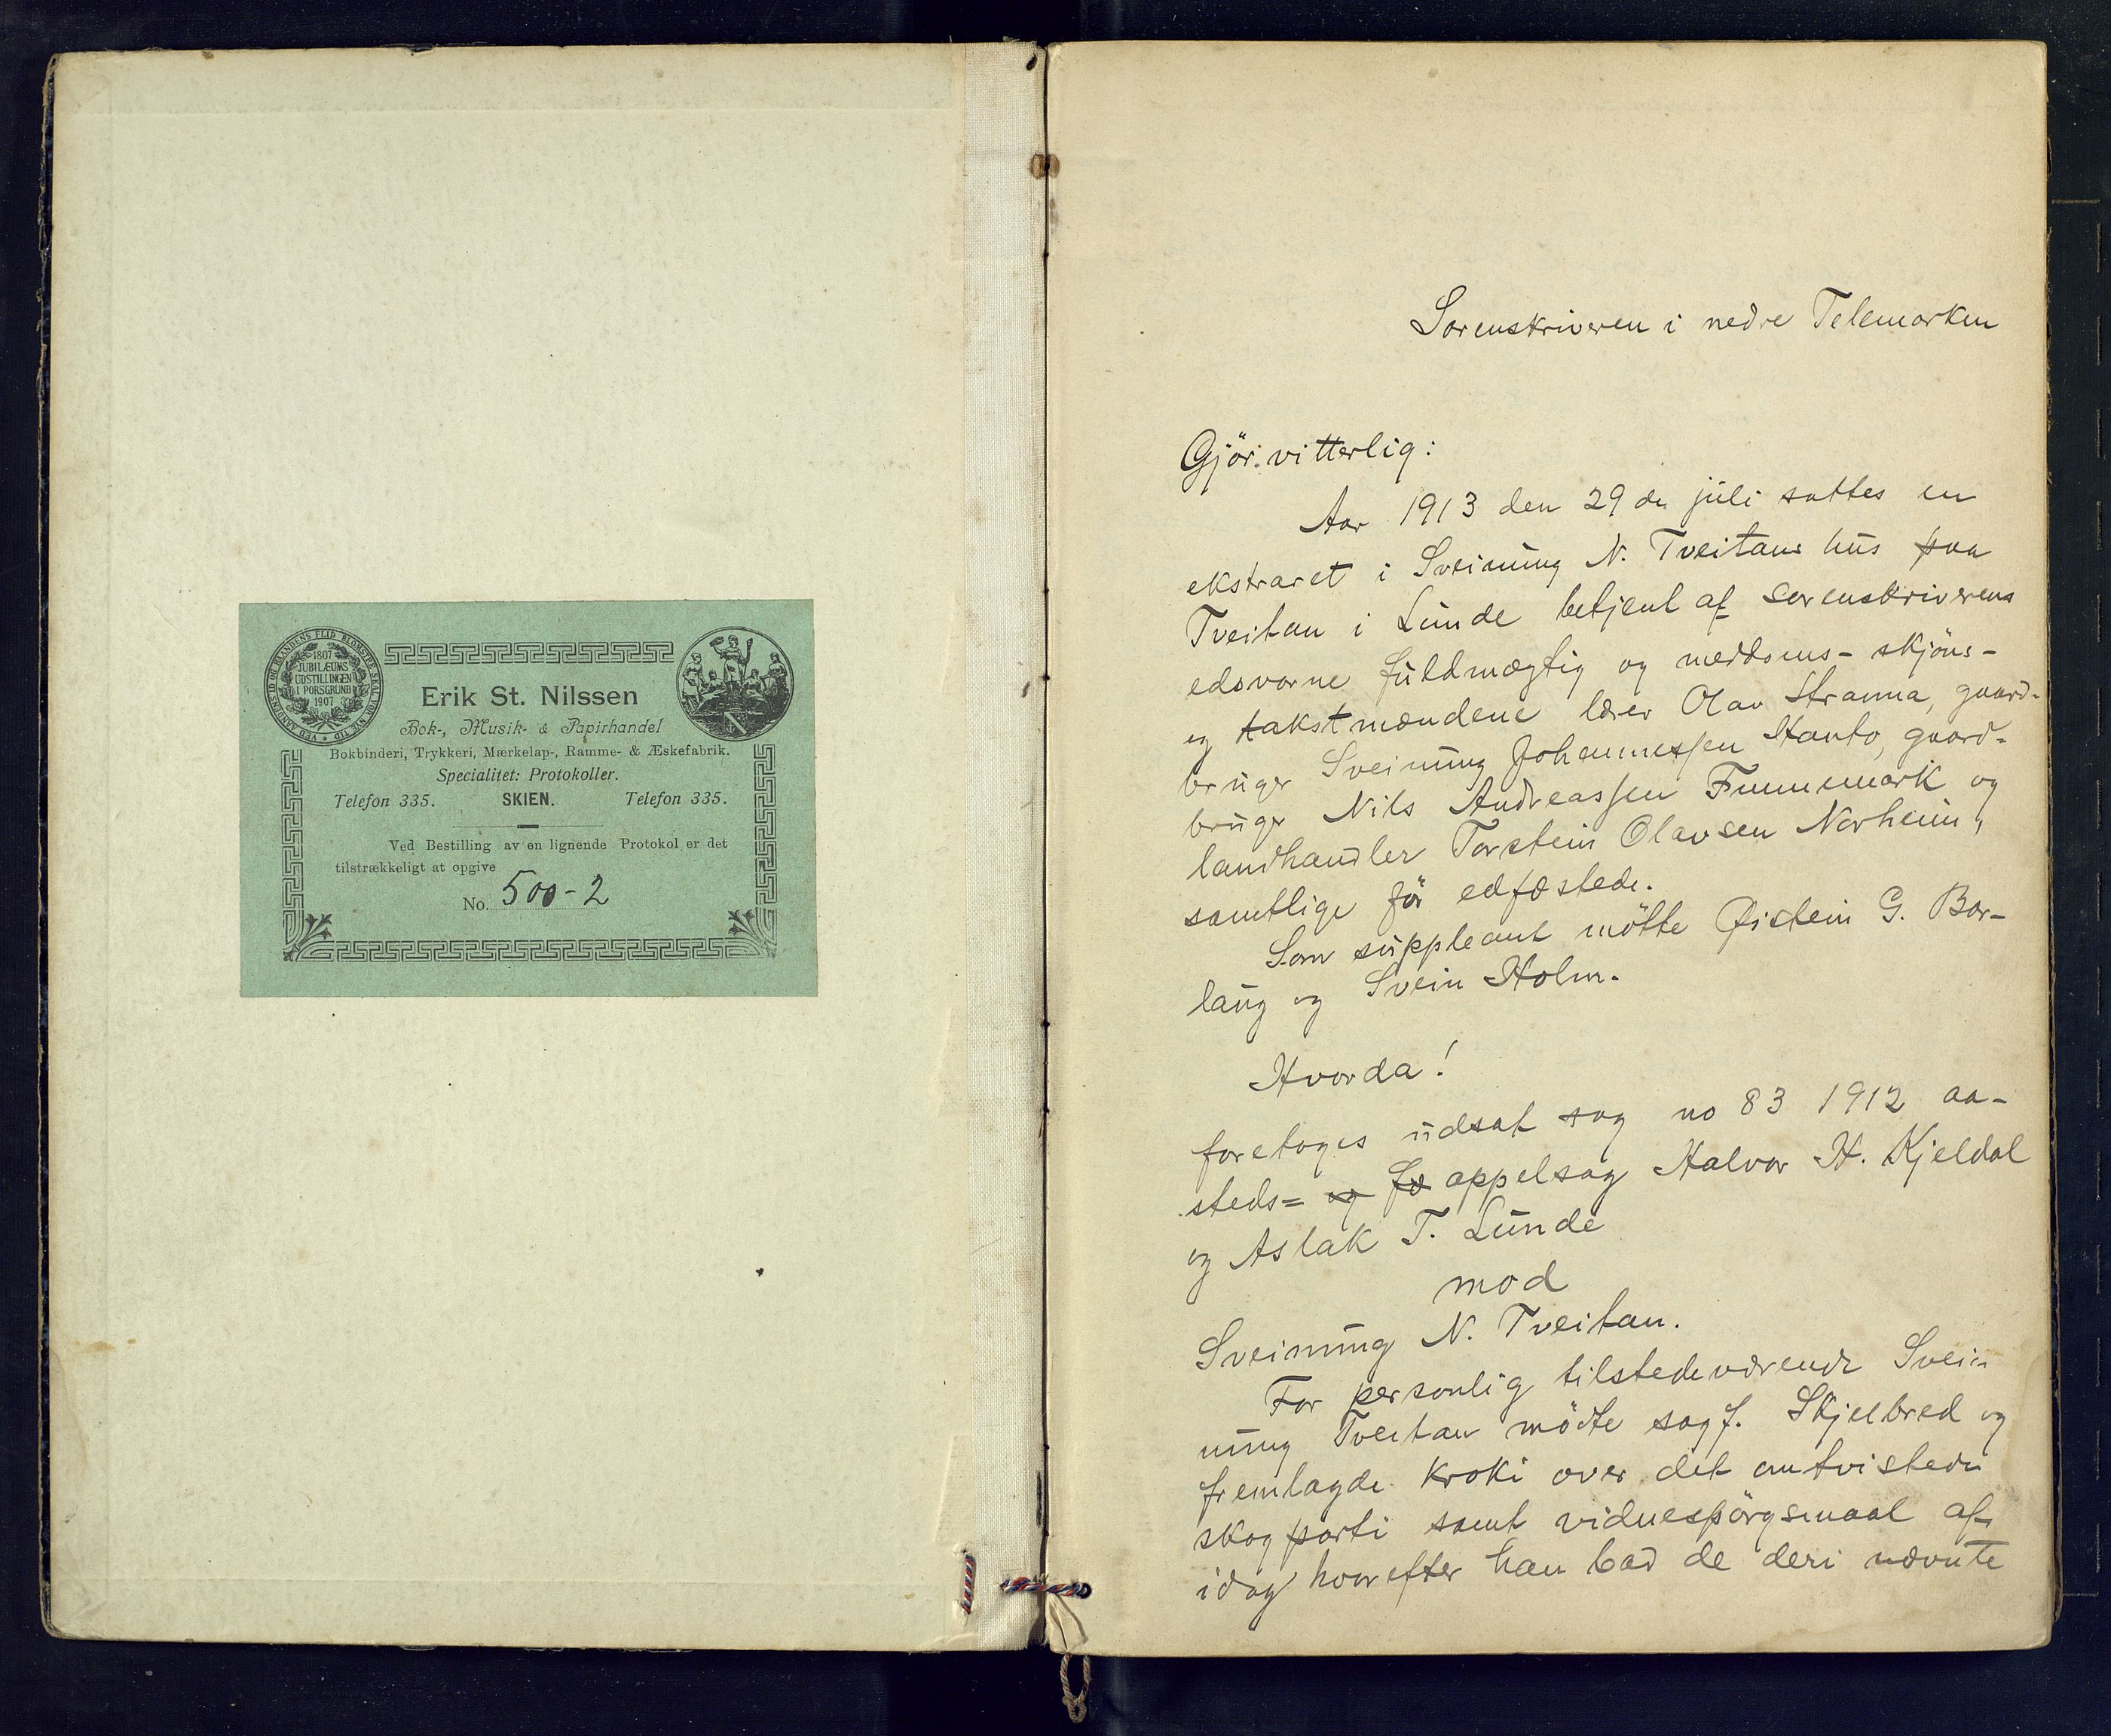 VED AANDENS ID OG HÆNDENS FLID BLOMSTRE SKAL VOR NYE TID
1807
JUBILÆUMS
UDSTILLINGEN
I PORSGRUND
1907
Erik St. Nilssen
Bok-, Musik- & Papirhandel
Bokbinderi, Trykkeri, Mærkelap-, Ramme- & Æskefabrik.
Specialitet: Protokoller.
Telefon 335. SKIEN. Telefon 335.
Ved Bestilling av en lignende Protokol er det
tilstrækkeligt at opgive
No. 500-2
Sorenskriveren i nedre Telemarken
Gjör vitterlig:
Aar 1913 den 29de juli sattes en
ekstraret i Sveinung N. Tveitans hus paa
Tveitan i Lunde betjent af sorenskriverens
edsvorne fuldmægtig og meddoms- skjöns-
og takstmændene lærer Olav Stranna, gaard-
bruger Sveinung Johannessen Hanto, gaard-
bruger Nils Andreassen Fummemark og
landhandler Torstein Olavsen Norheim,
samtlige för edfæstede.
Som suppleant mötte Øistein G. Bor-
laug og Svein Holm.
Hvorda!
foretoges udsat sag no 83 1912 aa-
steds= og fo appelsag Halvor H. Kjeldal
og Aslak T. Lunde
mod
Sveinung N. Tveitan.
For personlig tilstedeværende Svein
nung Tveitan mödte sagf. Skjelbred og
fremlagde kroki over det omtvistede
skogparti samt vidnespörgsmaal af
idag hvorefter han bad de deri nævnte